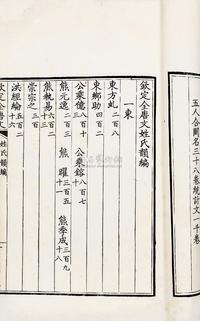 五人合闕名三十八卷統計文一千卷
欽定全唐文姓氏韻編
一東
東方虬 二百八
東鄉助 四百二
公乘億 八百十三 公乘鎔
熊元逸 熊曜 熊季成
熊執易 六百二十三
崇宗之
洪經綸 五百二十六
欽定全唐文 姓氏韻編